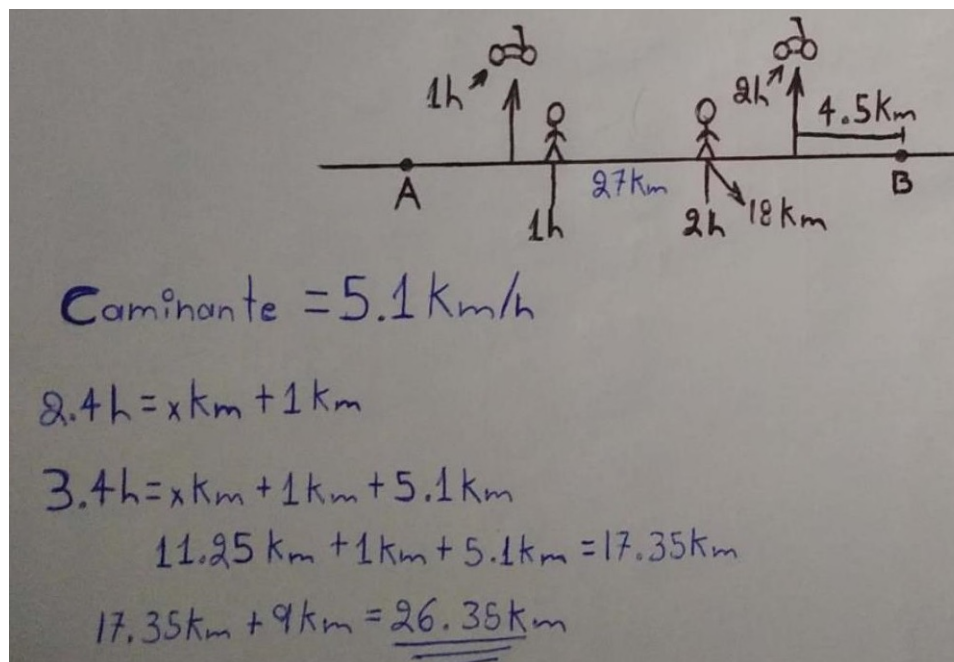 1h
2h
4.5km
A
27km
B
1h
2h
18km
Caminante = 5.1 km/h
2.4h = x km + 1 km
3.4h = x km + 1 km + 5.1 km
11.25 km + 1 km + 5.1 km = 17.35 km
17.35 km + 9 km = 26.35 km